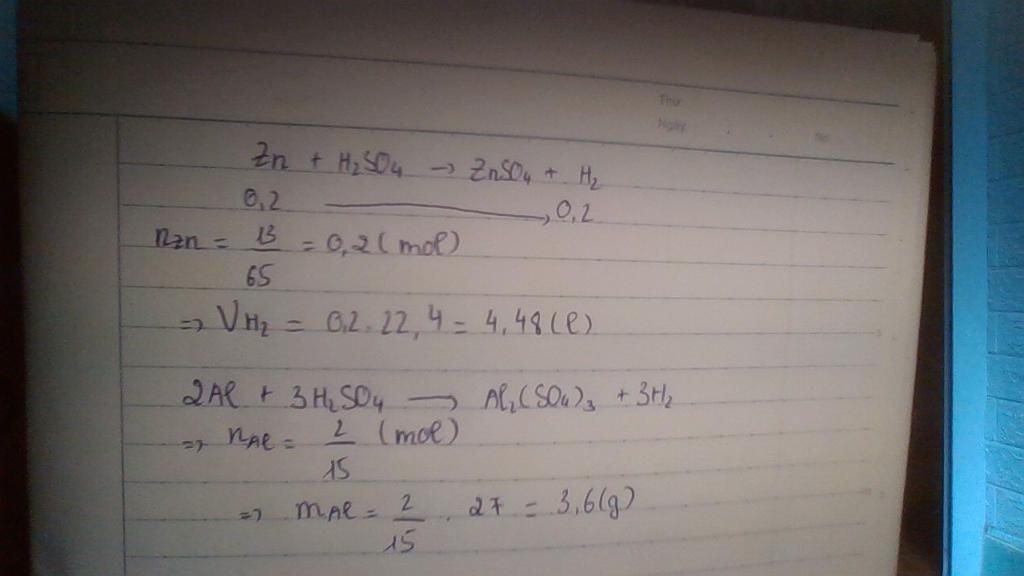 Thứ
Ngày
No.
Zn + H₂SO₄ → ZnSO₄ + H₂
0,2 → 0,2
nZn = 13/65 = 0,2 (mol)
=> VH₂ = 0,2.22,4 = 4,48(l)
2Al + 3H₂SO₄ → Al₂(SO₄)₃ + 3H₂
=> nAl = 2/15 (mol)
=> mAl = 2/15 . 27 = 3,6(g)